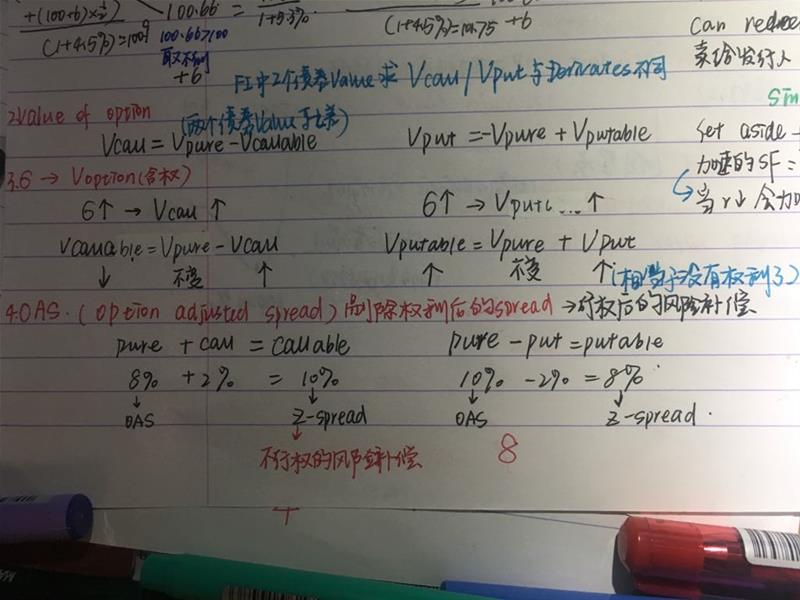 +(100+6)×½)
100.66 =
1+5.3%
(1+4.5%)=100.9
100.66>100
取不到
+6
(1+4.5%)=10.75 +6
can redee
卖给发行人
FI中2个债券Value求 Vcall/Vput与Derivates不同
2.Value of option
(两个债券Value于上差)
Vcall = Vpure - Vcallable
Vput = -Vpure + Vputable
Set aside
加速的SF =
当r↓会加
3.6 → Voption(含权)
6↑ → Vcall ↑
6↑ → Vputc...↑
Vcallable = Vpure - Vcall
Vputable = Vpure + Vput
↓ 不变 ↑
↑ 不变 ↑(相当于没有权利了)
4.OAS.(option adjusted spread)剔除权利后的spread → 行权后的风险补偿
pure + call = callable
pure - put = putable
8% +2% = 10%
10% -2% = 8%
↓ OAS ↓ Z-spread
↓ OAS ↓ Z-spread.
↓
不行权的风险补偿
8